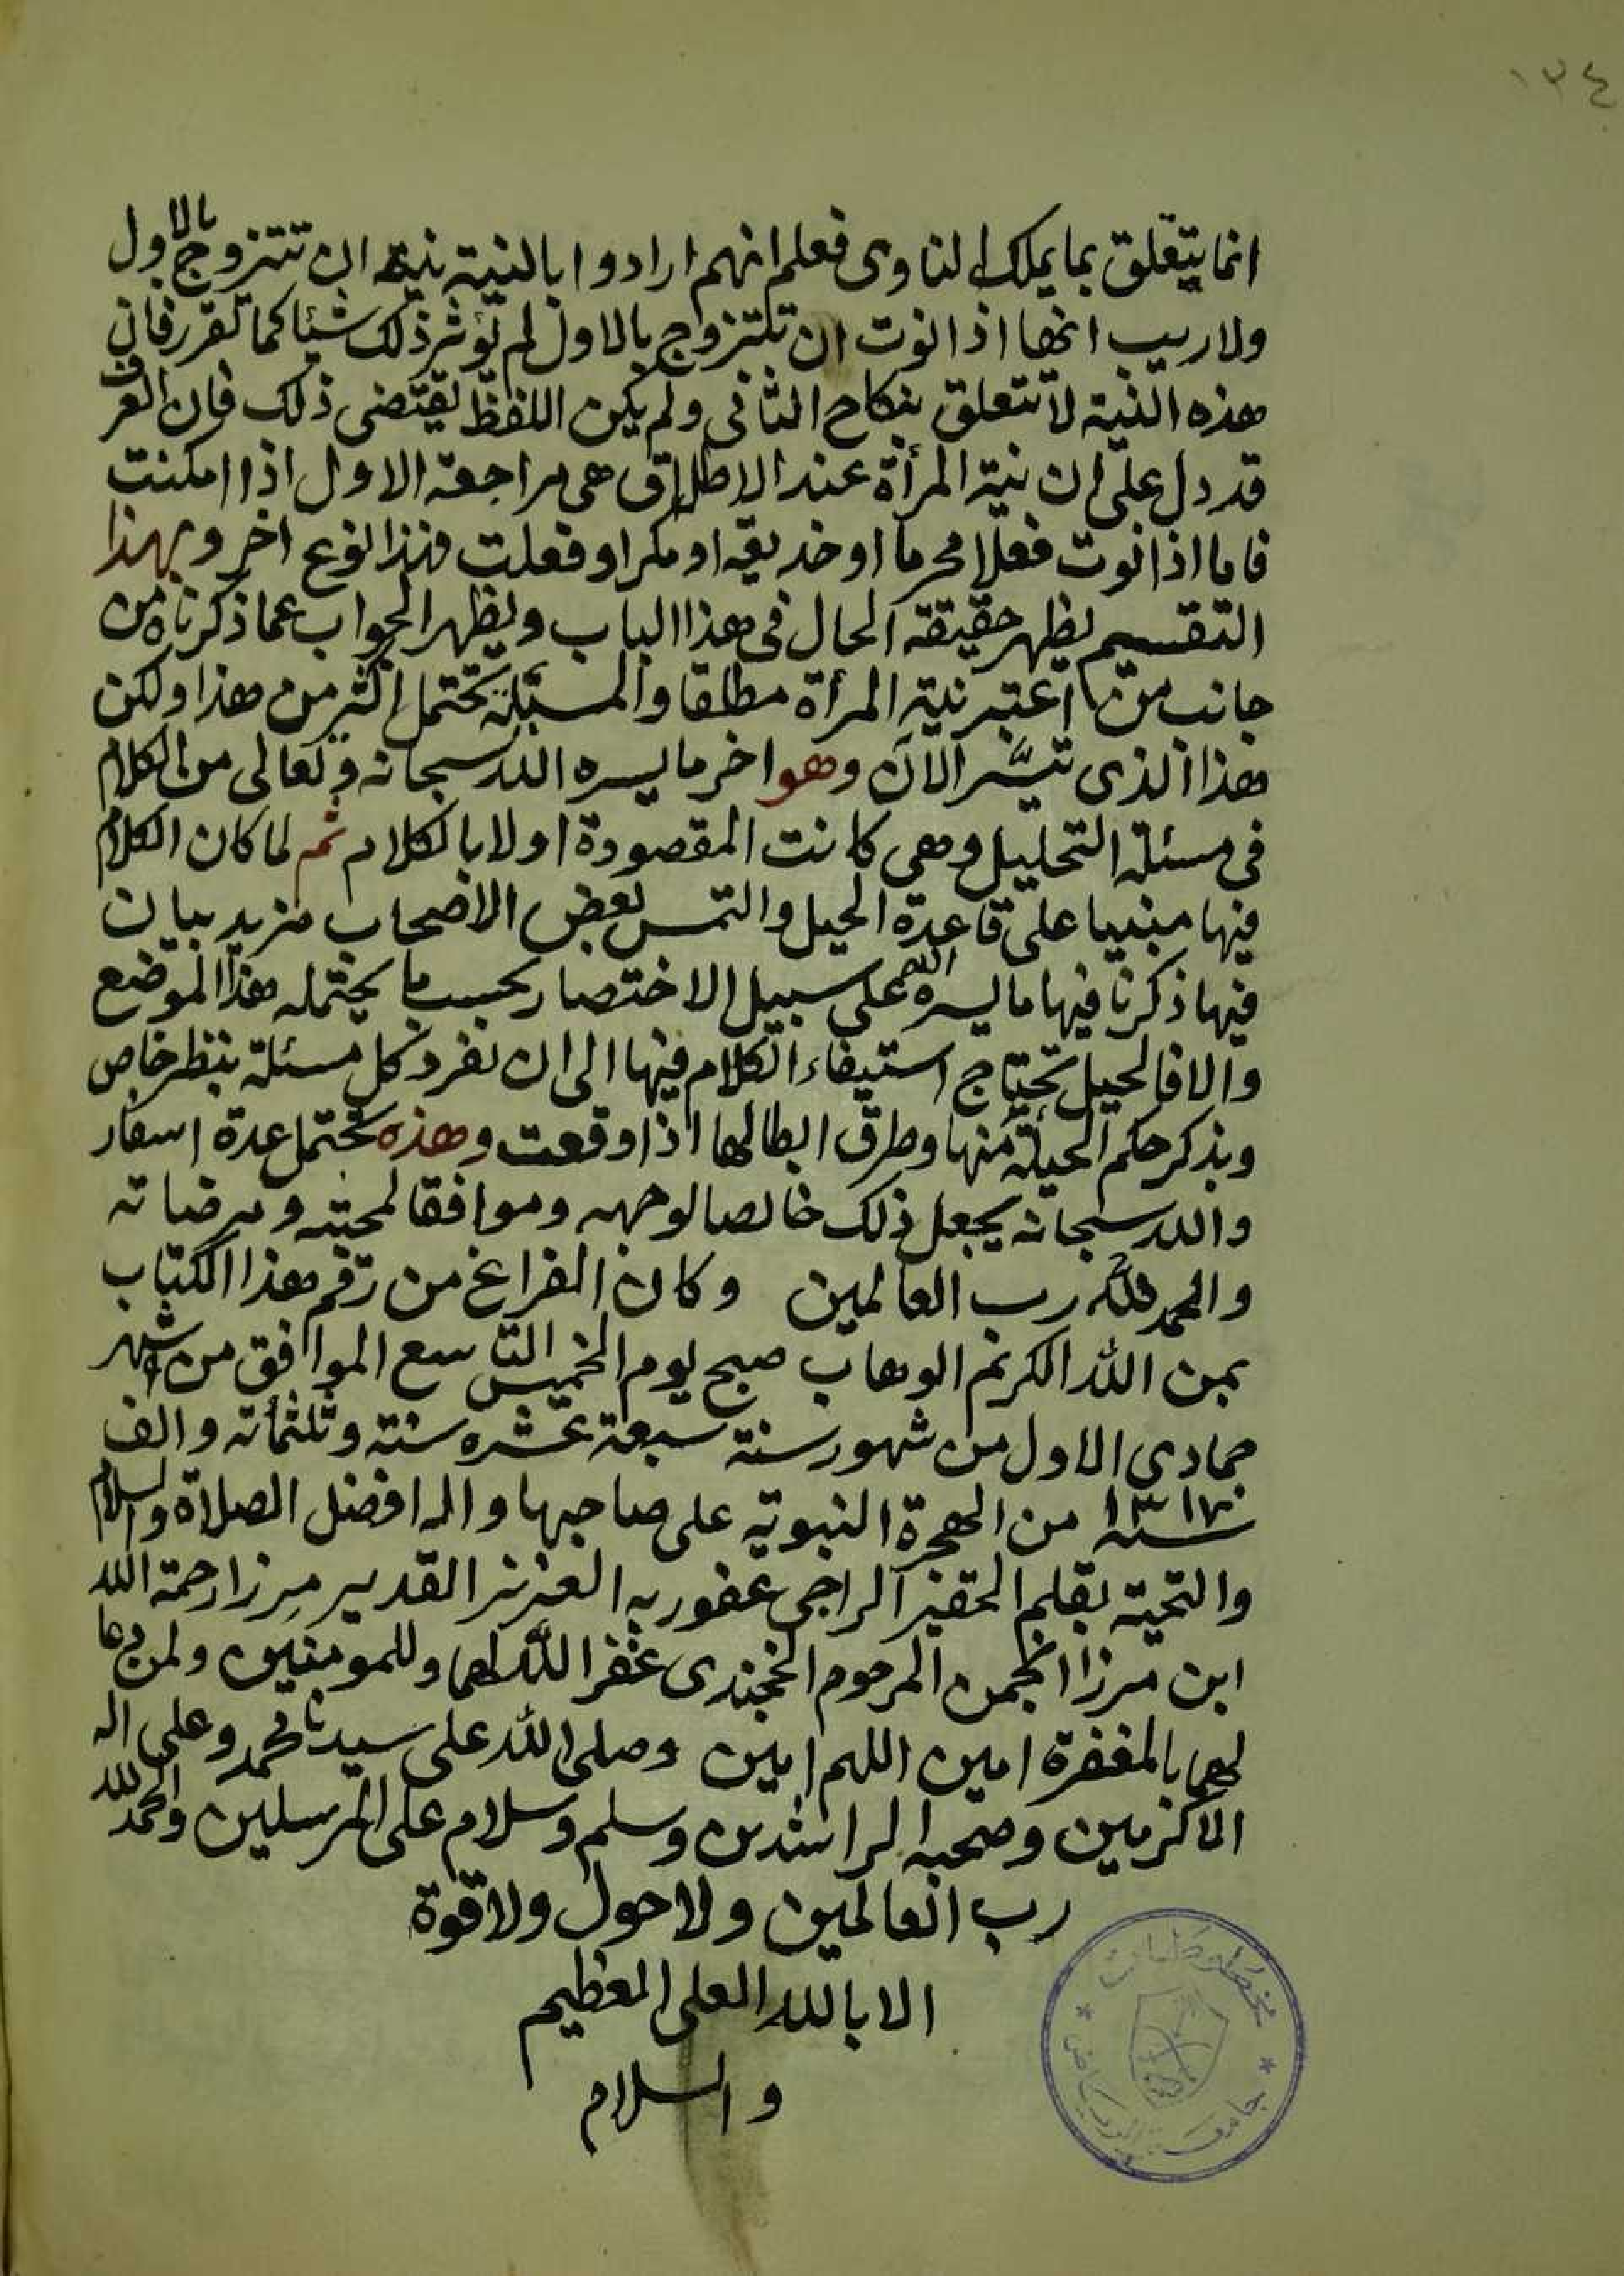 ١٣٤
انما يتعلق بما يملك الناوى فعلم انهم ارادوا بالنية نية ان تتزوج بالاول
ولاريب انها اذا نوت ان تتزوج بالاول لم تؤثر ذلك شيئا كما تقرر فان
هذه النية لا تتعلق بنكاح الثانى ولم يكن اللفظ يقتضى ذلك فان العرف
قد دل على ان نية المرأة عند الاطلاق هى مراجعة الاول اذا امكنت
فاما اذا نوت فعلا محرما او خديعة او مكرا وفعلت فهذا نوع اخر وبهذا
التقسيم يظهر حقيقة الحال فى هذا الباب ويظهر الجواب عما ذكرناه من
جانب من اعتبر نية المرأة مطلقا والمسئلة تحتمل اكثر من هذا ولكن
هذا الذى تيسَّر الآن وهو اخر ما يسره الله سبحانه وتعالى من الكلام
فى مسئلة التحليل وهى كانت المقصودة اولا بالكلام ثم لما كان الكلام
فيها مبنيا على قاعدة الحيل والتمس بعض الاصحاب مزيد بيان
فيها ذكرنا فيها ما يسره الله على سبيل الاختصار بحسب ما يحتمله هذا الموضع
والا فالحيل تحتاج استيفاء الكلام فيها الى ان نفرد كل مسئلة بنظر خاص
وبذكر حكم الحيلة منها وطرق ابطالها اذا وقعت وهذه تحتمل عدة اسفار
والله سبحانه يجعل ذلك خالصا لوجهه وموافقا لمحبته ومرضاته
والحمد لله رب العالمين وكان الفراغ من رقم هذا الكتاب
بمن الله الكريم الوهاب صبح يوم الخميس التاسع الموافق من شهر
جمادى الاول من شهور سنة سبعة عشره سنة وثلثمأته والف
سنة ١٣١٧ من الهجرة النبوية على صاحبها واله افضل الصلاة والسلام
والتحية بقلم الحقير الراجى عفو ربه العزيز القدير مرزا رحمة الله
ابن مرزا المرحوم الخجندى غفر الله لهما وللمومنين ولمن دعا
لهما بالمغفرة امين اللهم امين وصلى الله على سيدنا محمد وعلى اله
الاكرمين وصحبه الراشدين وسلم وسلام على المرسلين والحمد لله
رب العالمين ولا حول ولا قوة
الا بالله العلى العظيم
والسلام
مخطوطات
جامعة الرياض